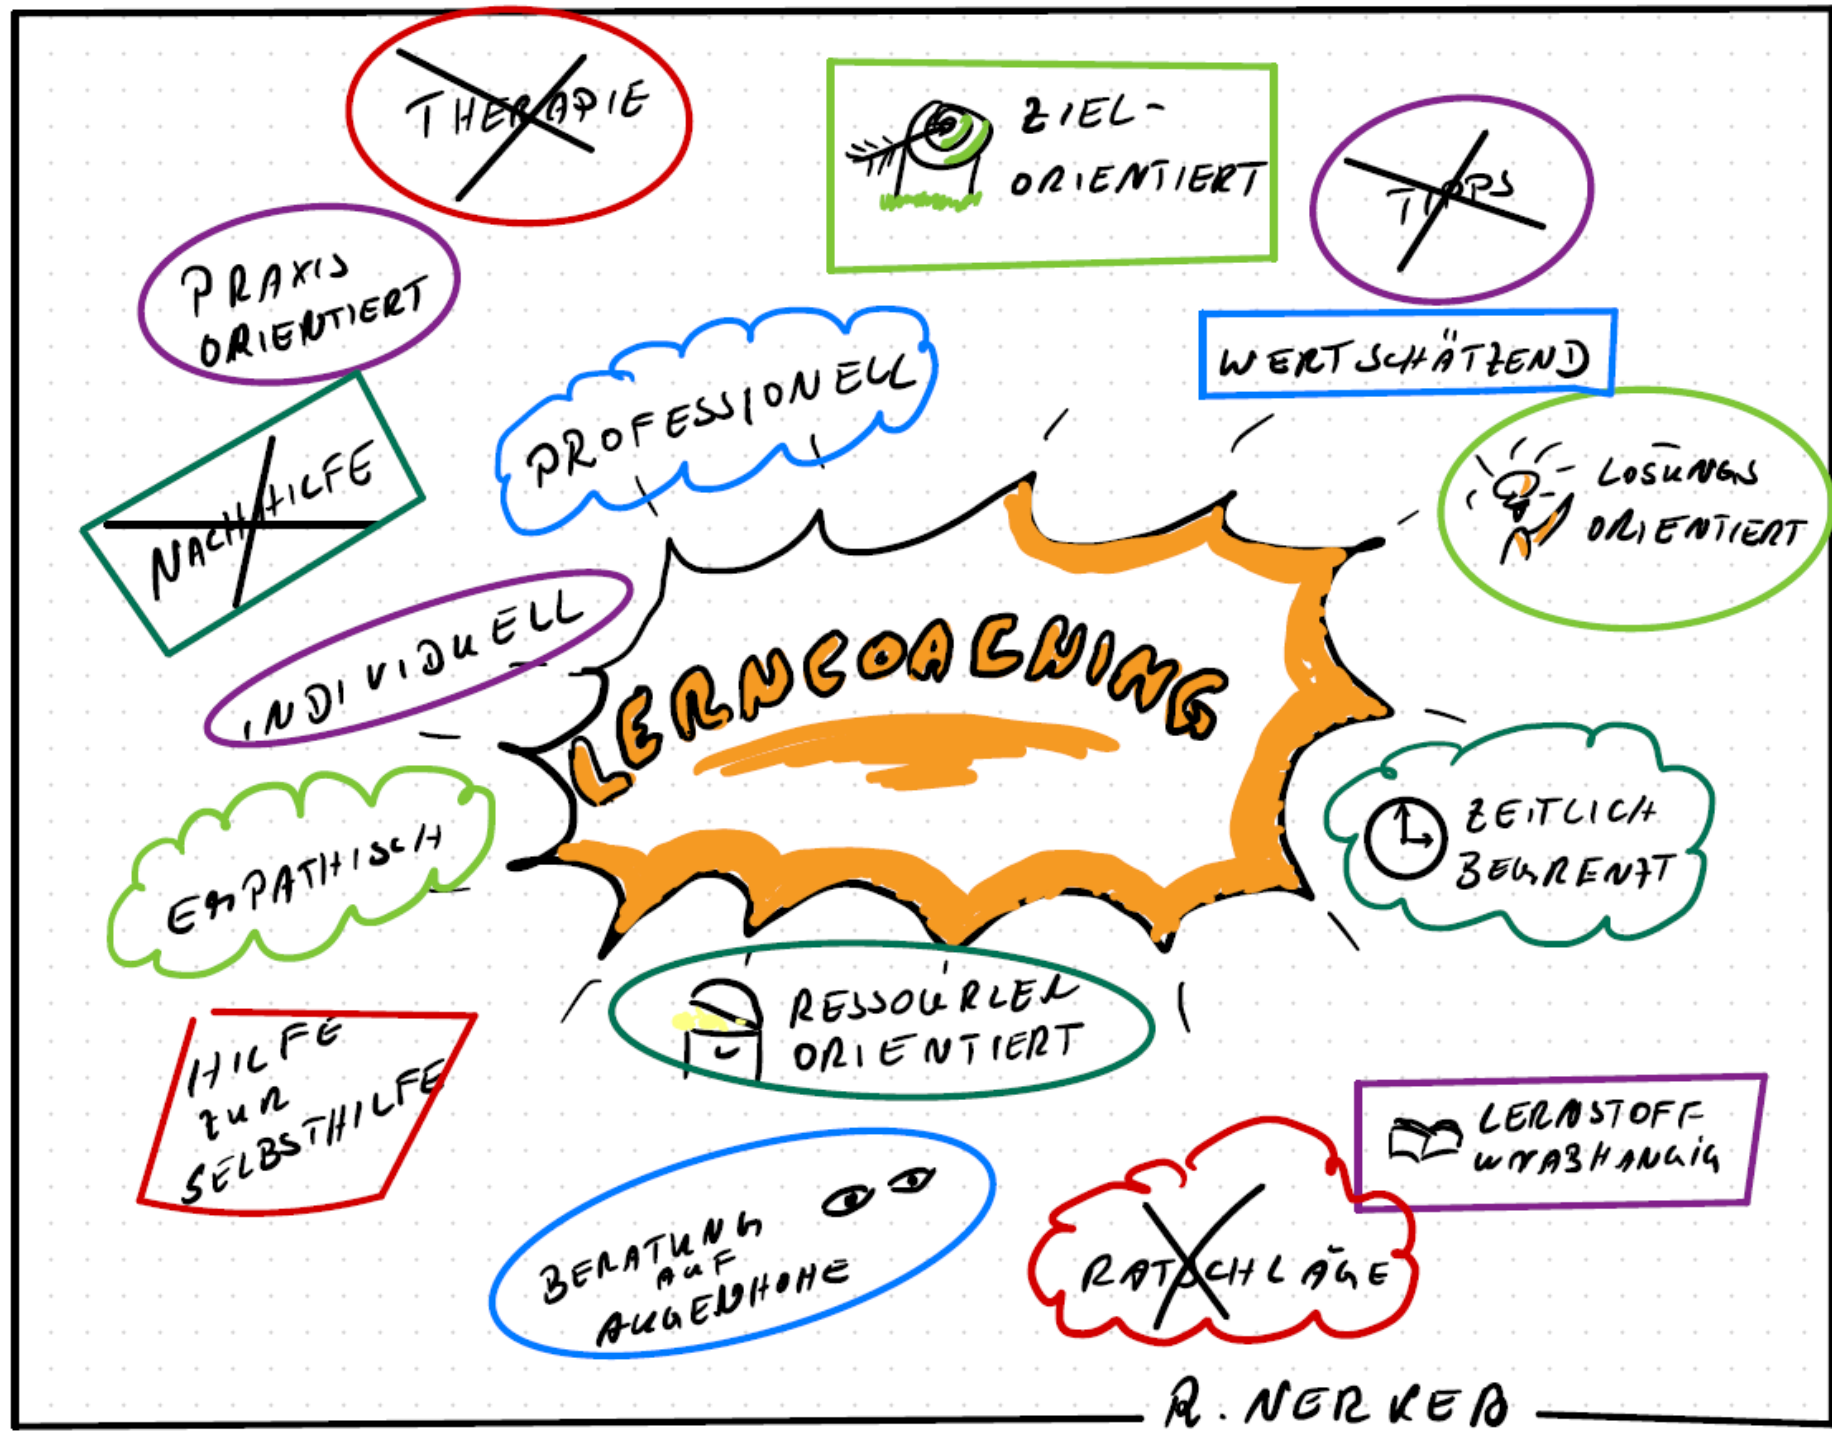 THERAPIE
ZIEL-
ORIENTIERT
TIPPS
PRAXIS
ORIENTIERT
WERTSCHÄTZEND
PROFESSIONELL
NACHHILFE
LÖSUNGS
ORIENTIERT
INDIVIDUELL
LERNCOACHING
ZEITLICH
BEGRENZT
EMPATHISCH
RESSOURCEN
ORIENTIERT
HILFE
ZUR
SELBSTHILFE
LERNSTOFF
UNABHANGIG
BERATUNG
AUF
AUGENHOHE
RATSCHLÄGE